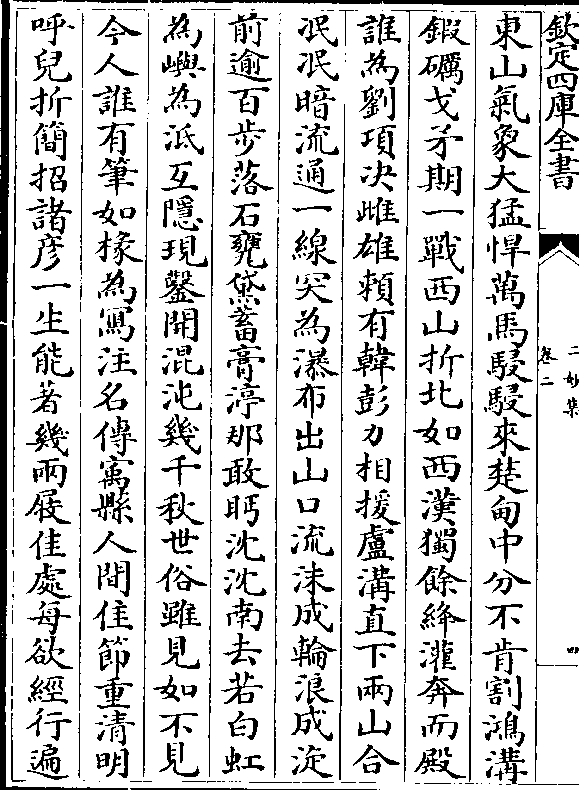 欽定四庫全書
二妙集
卷二
四
東山氣象大猛悍萬馬駸駸來楚甸中分不肯割鴻溝
鍜礪戈矛期一戰西山折北如西漢獨餘絳灌奔而殿
誰為劉項決雌雄頼有韓彭力相援盧溝直下兩山合
泯泯暗流通一線突為瀑布出山口流沫成輪浪成淀
前逾百步落石甕黛蓄膏渟那敢眄沈沈南去若白虹
為嶼為泜互隱現鑿開混沌幾千秋世俗雖見如不見
今人誰有筆如椽為寫注名傳寓縣人間佳節重清明
呼兒折簡招諸彥一生能著幾兩屐佳處每欲經行遍